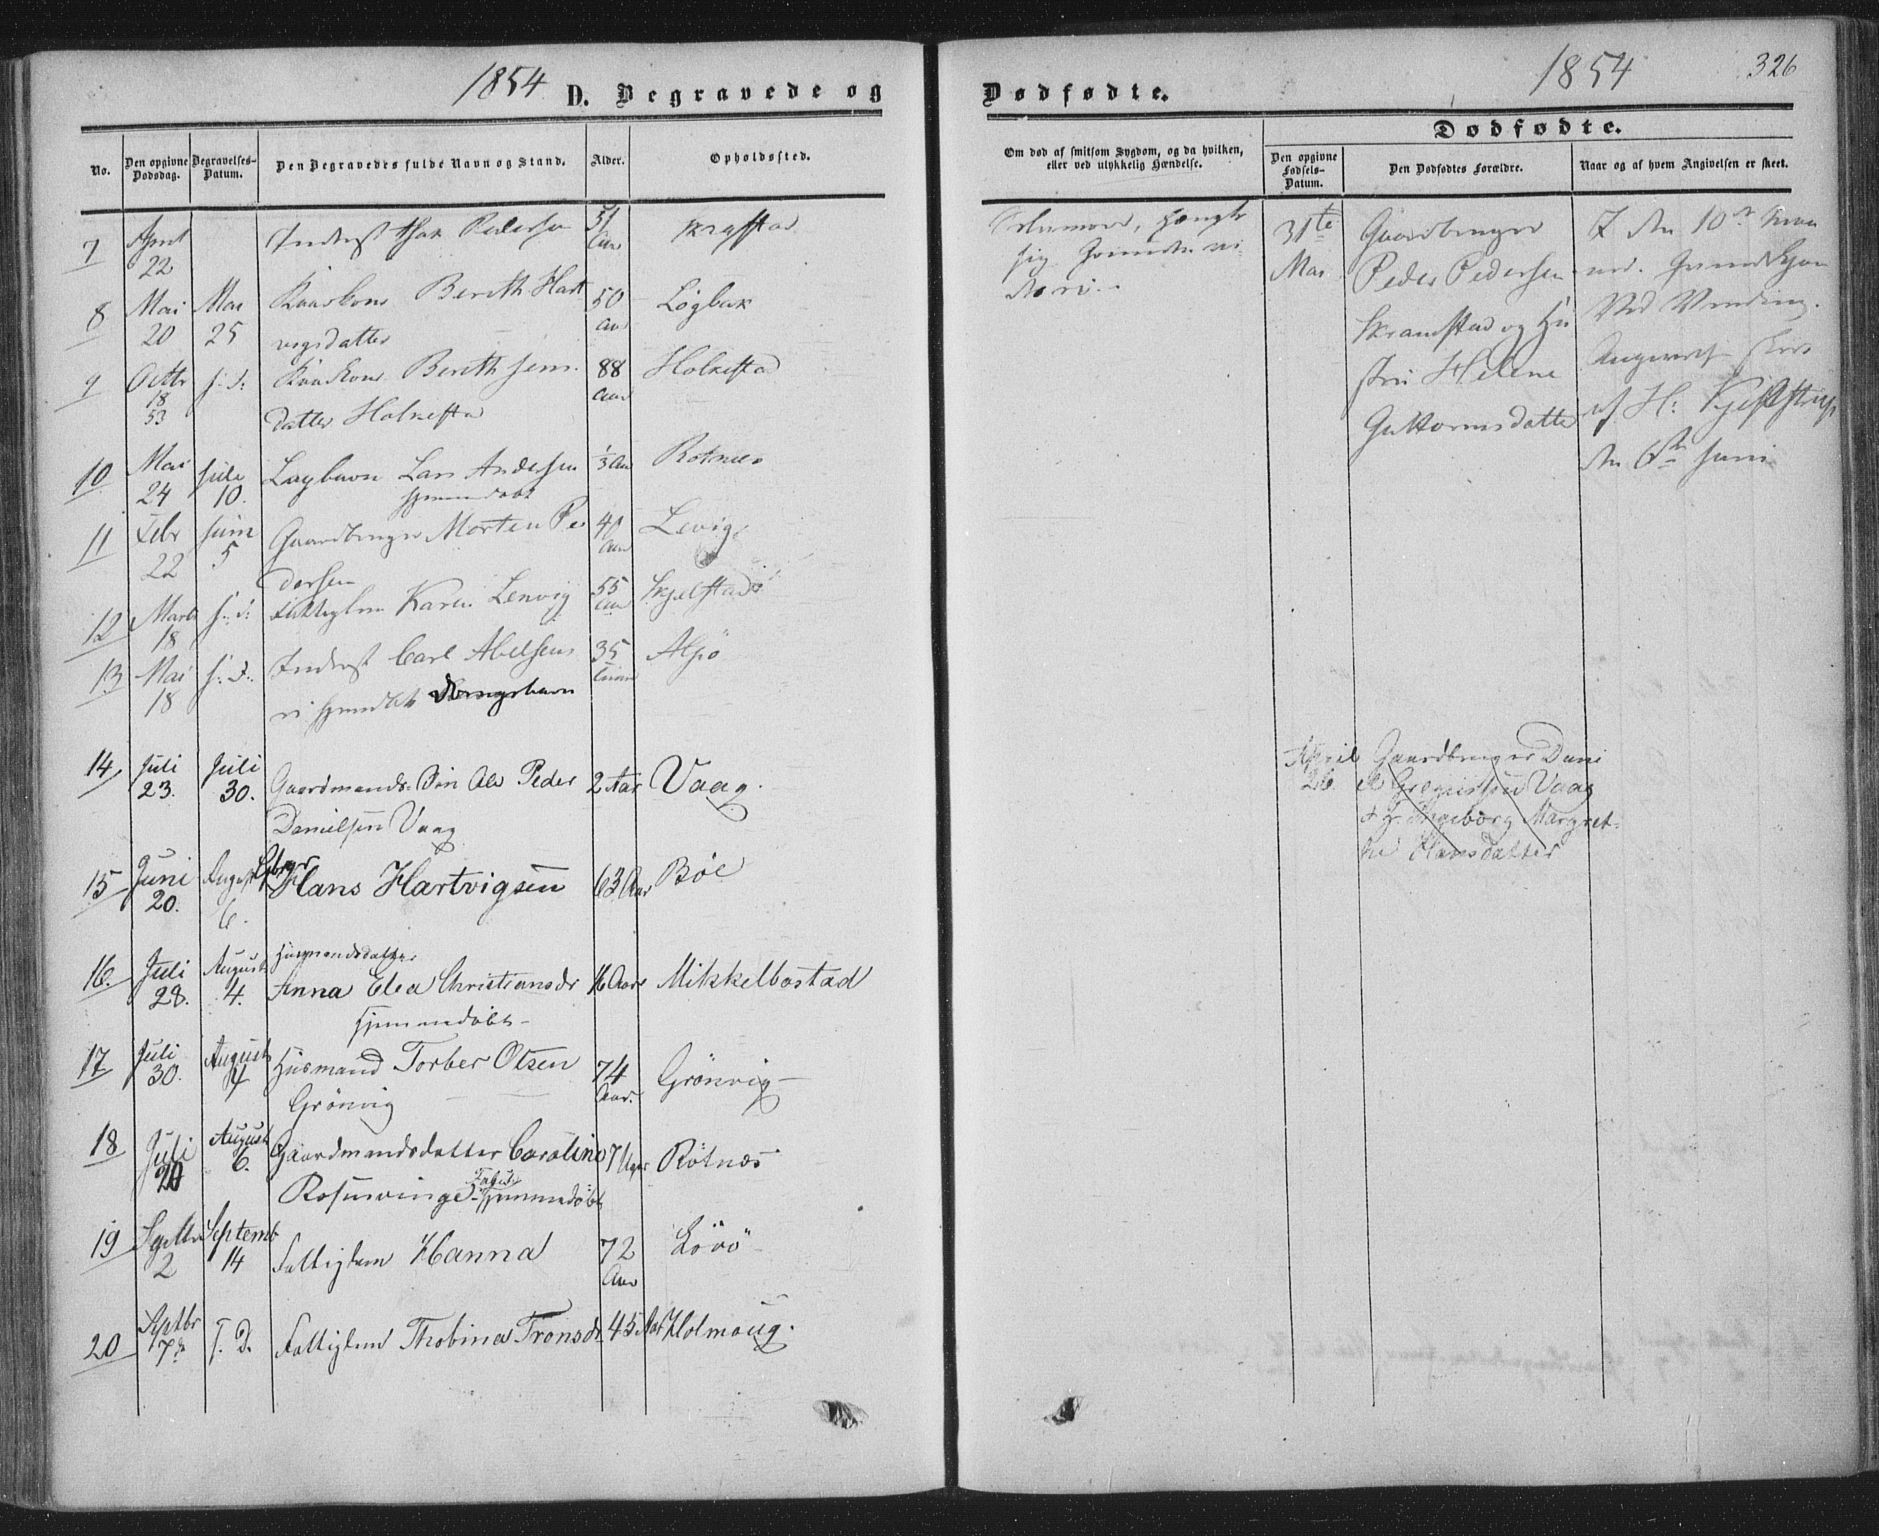 1854 D. Begravede og Dødfødte. 1854 326
No. Den opgivne Dødsdag. Begravelses-Datum. Den Begravedes fulde Navn og Stand. Alder. Opholdssted.
Om død af smitsom Sygdom, og da hvilken, eller ved ulykkelig Hændelse.
Dødfødte.
Den opgivne Fødsels-Datum. Den Dødfødtes Forældre. Naar og af hvem Angivelsen er skeet.
7 April 22 Inderst Pedersen 51 Aar
8 Mai 20 Mai 25 Berith Hart
vigsdatter 50 Aar Løgbuk
9 Octbr 18 53 s. d. Berith Jens
datter Holkestad 88 Aar Holkestad
10 Mai 24 Juli 10. Lars Andersen 1/3 Aar Rotnes
hjemmedøbt
11 Febr 22 Juni 5 Gaardbruger Morten Pe
dersen 40 Aar Levig
12 Marts 18 s. d: Fattiglem Karen Lenvig 55 Aar Skjelstad
13 Mai 18 s. d. Inderst Carl Abelsen 35 Alsø
31te Mai Gaardbruger
Peder Pedersen
Skramstad og Hu
stru Helene
Guttormsdatter
den 10de
af H: Kjelstrup
den 6te Juni
14 Juli 23. Juli 30. Gaardmands Søn Ole Peder
Danielsen Vaag 2 Aar Vaag.
April 26 Gaardbruger Dani
el Gregussen Vaag
& H. Ingeborg Margret-
he Hansdatter
15 Juni 20. August 6. Hans Hartvigsen 63 Aar Böe
16. Juli 28. August 4. Husmandsdatter
Anna Elea Christiansdr 16 Aar Mikkelbostad
hjemmedøbt
17 Juli 30. August 4 Husmand Torber Olsen
Grönvig 74 Aar. Grönvig
18 Juli 20 August 6. Gaardmandsdatter Caroline
Rosenvinge hjemmedöbt 7 Uger Rötnæs
19 Septbr 2 Septemb 14 Fattiglem Hanna 72 Aar Lövö
20 Septbr 7de s. D. Fattiglem Thobina Tronsdr 45 Aar Holmoug.